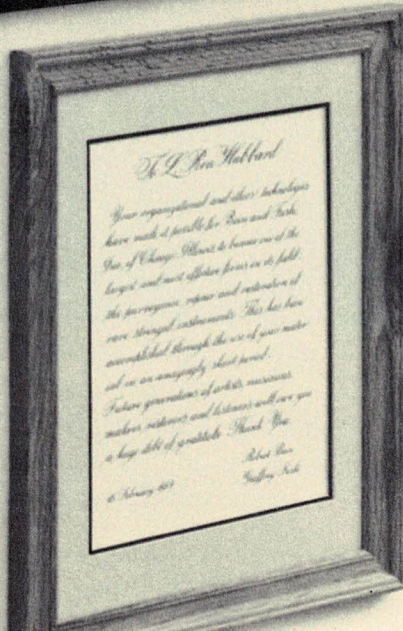 To L. Ron Hubbard
Your organizational and other technologies
have made it possible for Bein and Fushi,
Inc. of Chicago, Illinois to become one of the
largest and most effective firms in its field:
the purveyance, repair and restoration of
rare stringed instruments. This has been
accomplished through the use of your mater
ial in an amazingly short period.
Future generations of artists, musicians
makers, restorers and listeners will owe you
a huge debt of gratitude. Thank You.
Robert Bein
February Geoffrey Fushi